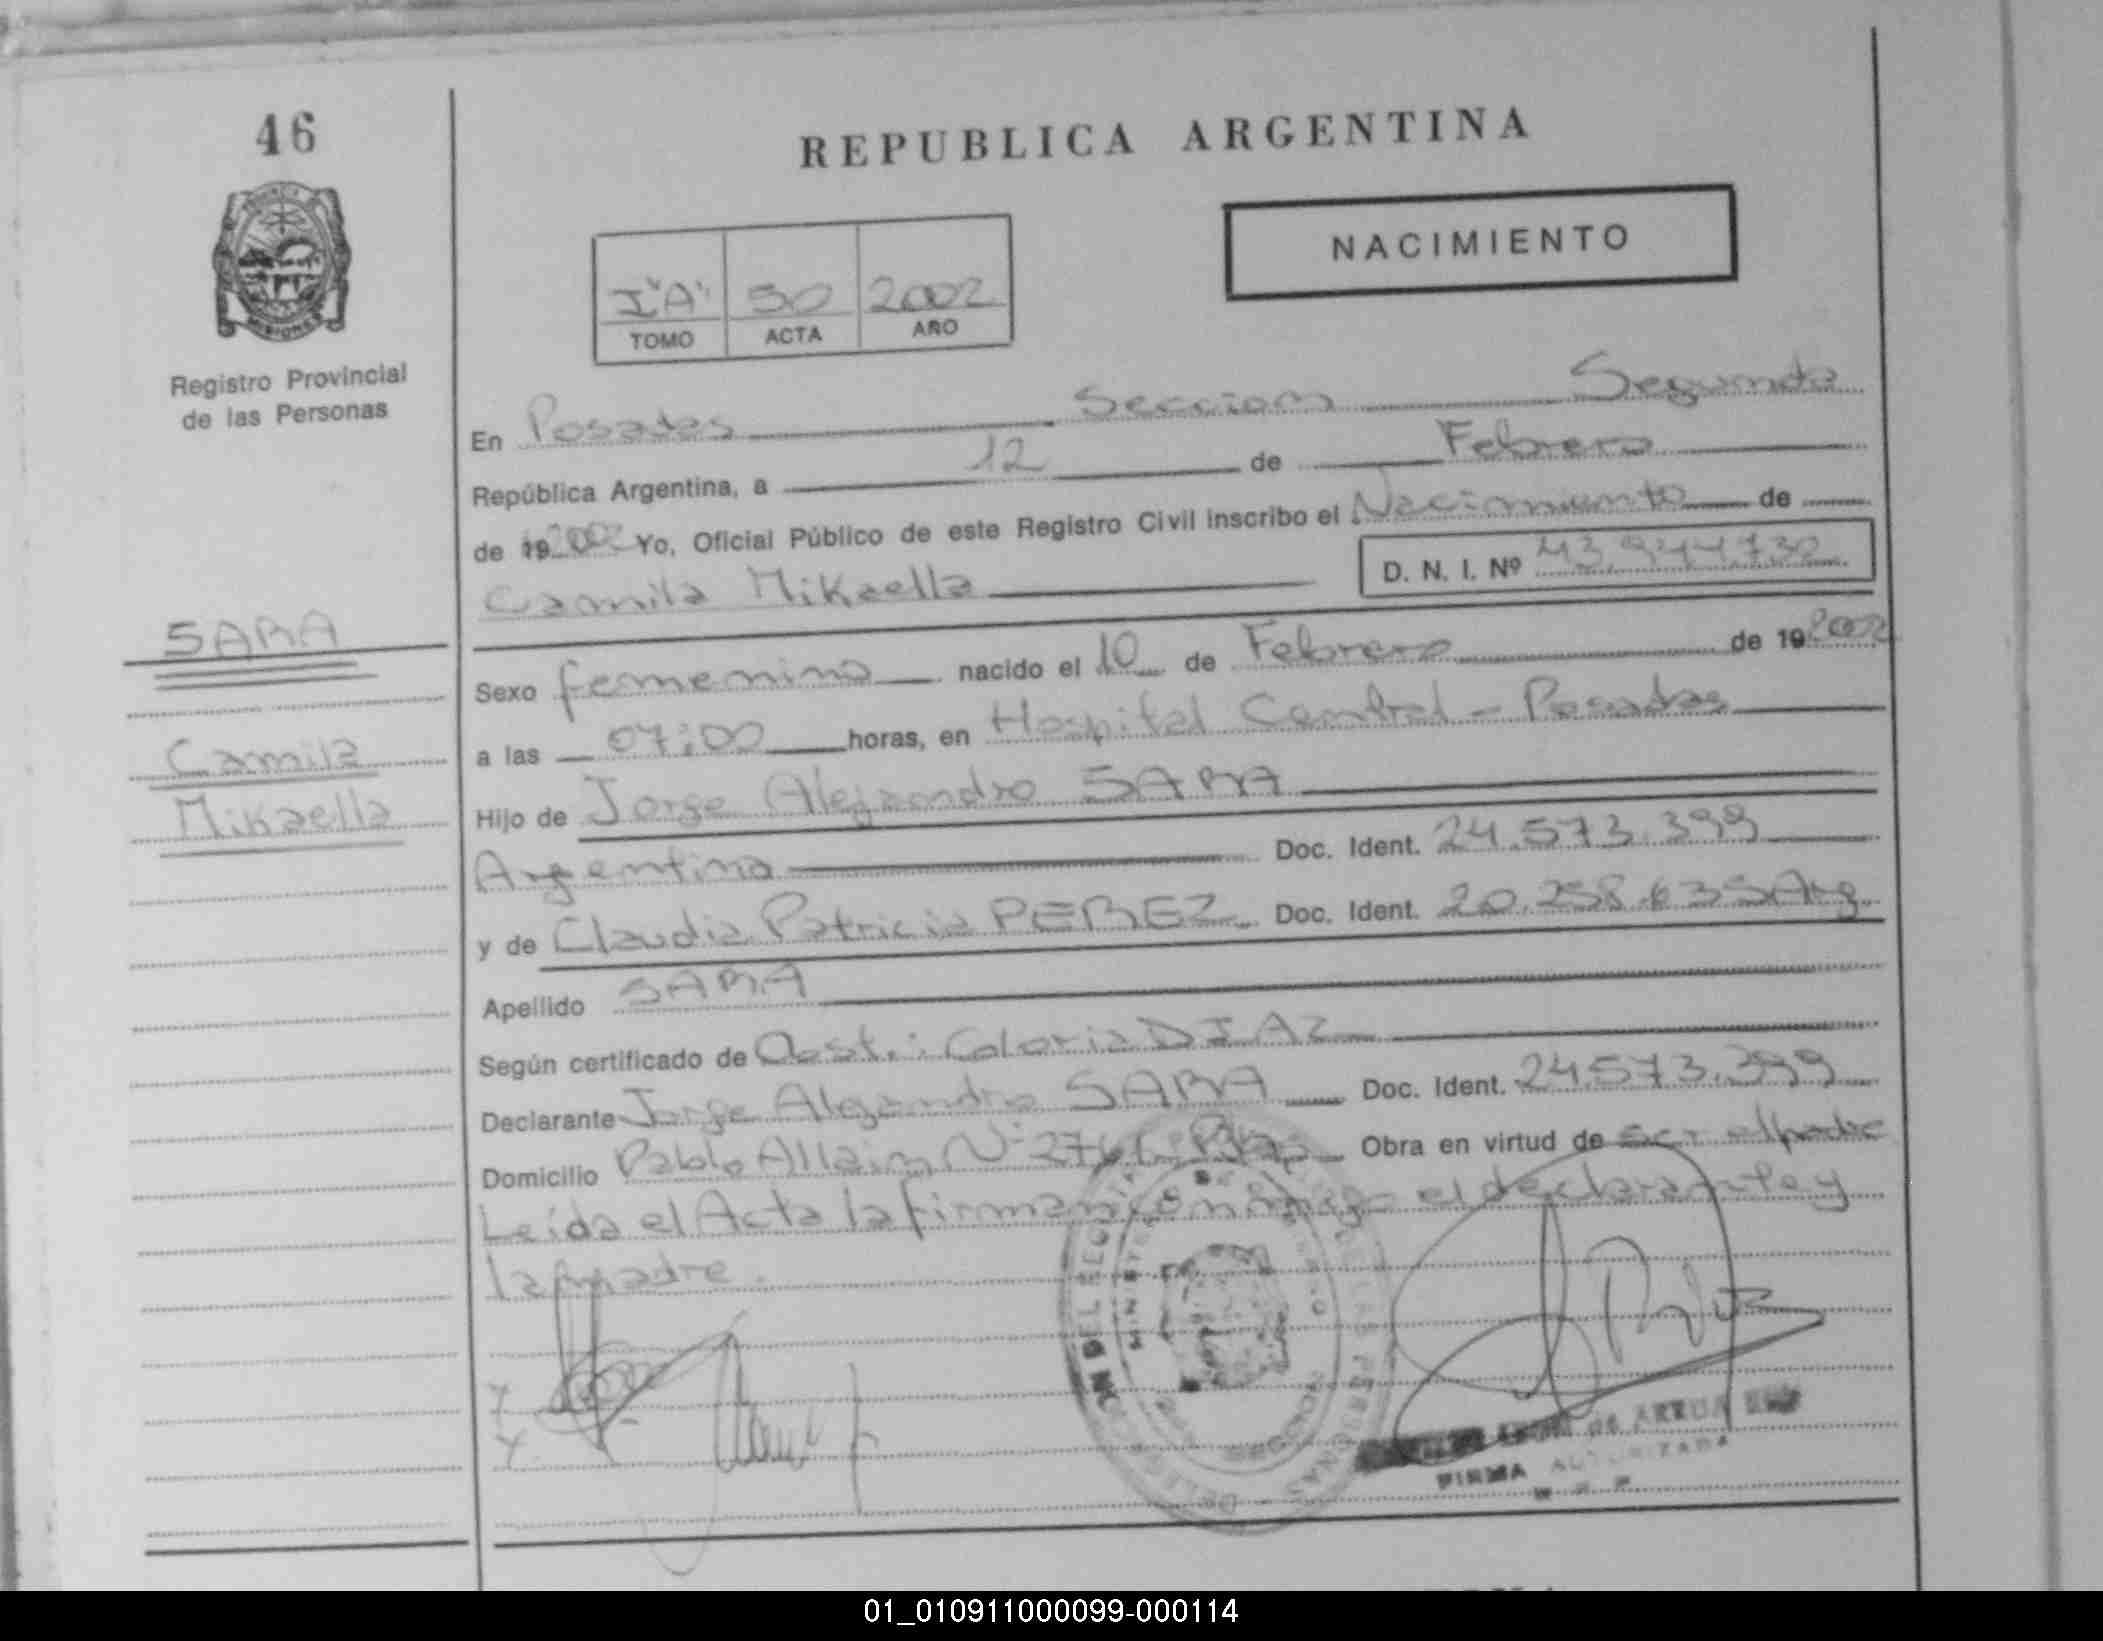 46
REPUBLICA ARGENTINA
NACIMIENTO
I "A" 50 2002
TOMO ACTA AÑO
MISIONES
Registro Provincial
de las Personas
En Posadas Seccion Segunda
República Argentina, a 12 de Febrero
de 19 2002 Yo, Oficial Público de este Registro Civil inscribo el Nacimiento de
Camila Mikaella D. N. I. Nº
SARA
Sexo femenino nacido el 10 de Febrero de 19 2002
a las 07:00 horas, en Hospital Central - Posadas
Camila
Mikaella
Hijo de Jorge Alejandro SARA
Argentina Doc. Ident. 24.573.399
y de Claudia Patricia PEREZ Doc. Ident. 20.258.635 Arg.
Apellido SARA
Según certificado de Obst.: DIAZ
Declarante Jorge Alejandro SARA Doc. Ident. 24.573.399
Domicilio Pablo Allain Nº Obra en virtud de ser el padre
Leída el Acta la firman conmigo el declarante y
la madre.
DE ARRUA
FIRMA AUTORIZADA
01_010911000099-000114